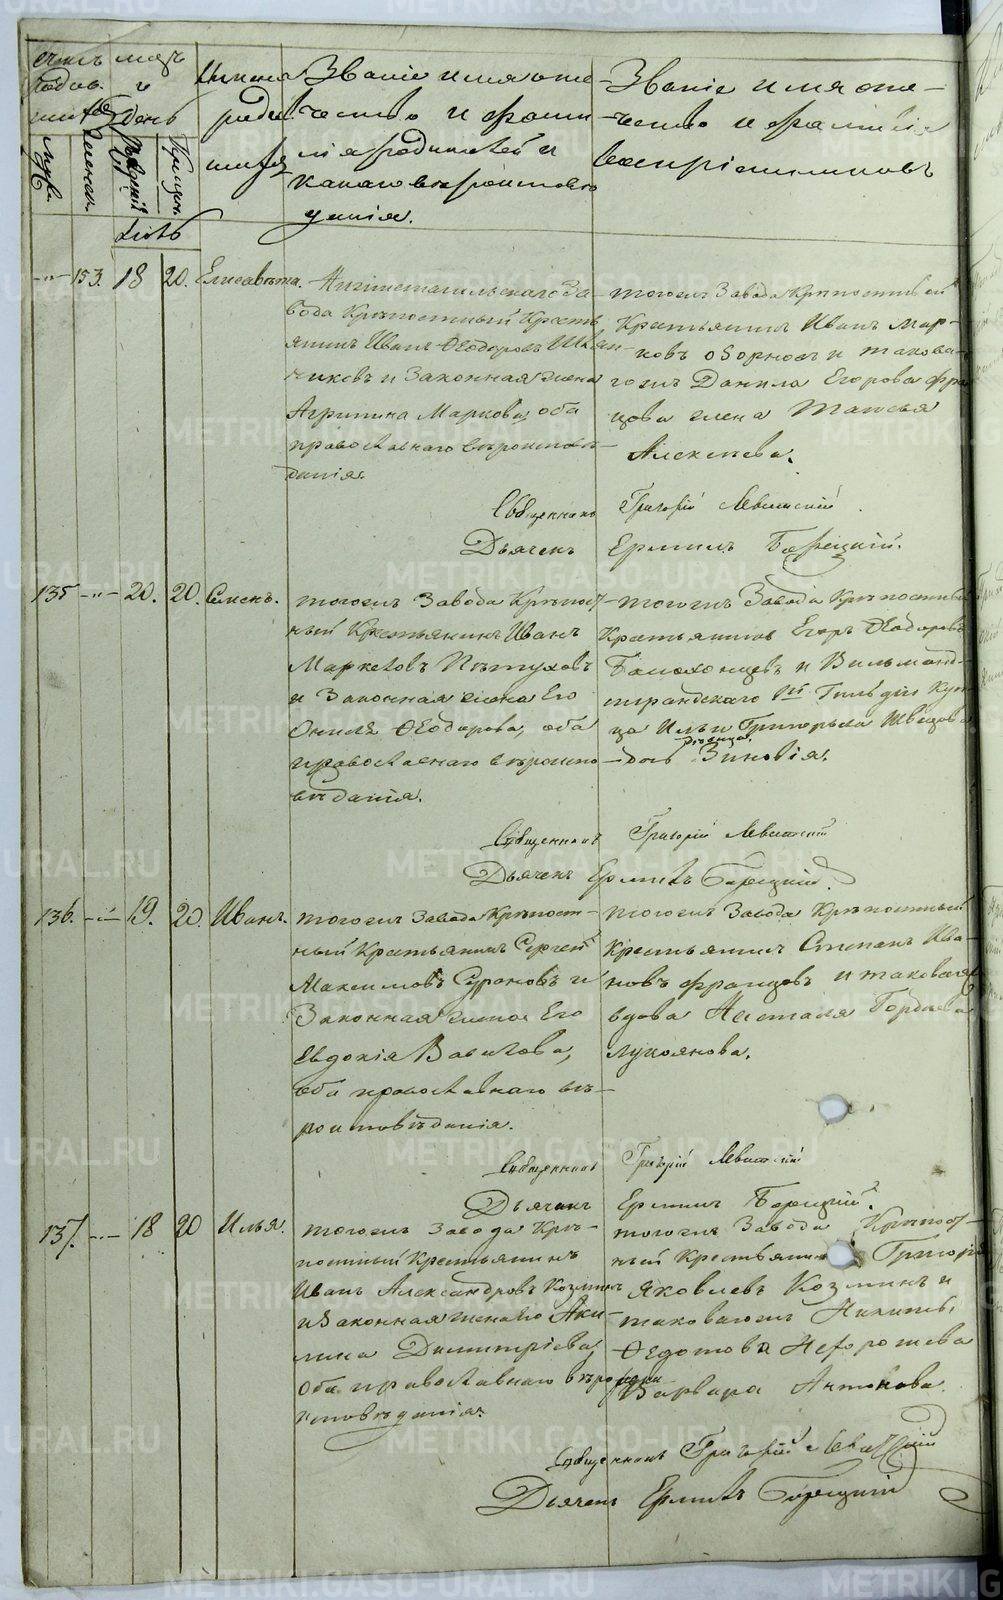 Счетъ родив. шихся
мѣс. и день
Имена роди шихся
Званіе имя оте-
чество и фами-
лія родителей и
какого вѣроисповѣ
данія.
Званіе имя оте-
чество и фамилія
воспріемниковъ
Муж.
Женска.
Рожденій
Крещен.
153. 18 20. Елисавѣта.
завода Крѣпостный Кресть
янинъ Иванъ Ѳеодоровъ
и Законная жена
Агрипина Маркова, оба
православнаго вѣроисповѣ-
данія.
тогожъ Завода Крѣпостный
Крестьянинъ Иванъ Мар-
ковъ и такова-
гожъ Данила Егорова
жена Татьяна
Алексѣева.
Священникъ Григорій Левитскій
Дьячекъ Ермилъ Борецкій.
135 -„- 20. 20. Семенъ.
тогожъ Завода Крѣпост-
ный Крестьянинъ Иванъ
Маркеловъ Пѣтуховъ
и Законная жена Его
Ѳеодорова, оба
православнаго вѣроиспо
вѣданія.
тогожъ Завода Крѣпостный
Крестьянинъ Егоръ Ѳеодоровъ
и Вильманд-
страндскаго III Гильдіи Куп-
ца Ильи Григорьева Швецова
дочь девица Зиновія.
Священникъ Григорій Левитскій
Дьячекъ Ермилъ Борецкій.
136. -„- 19. 20. Иванъ.
тогожъ Завода Крѣпост-
ный Крестьянинъ Сергей
Максимовъ Сурановъ и
Законная жена Его
Евдокія Вавилова,
оба православнаго вѣ-
роисповѣданія.
тогожъ Завода Крѣпостный
Крестьянинъ Степанъ Ива-
новъ Францовъ и таковая
вдова Наталя Гордѣева
Лукоянова.
Священникъ Григорій Левитскій
Дьячекъ Ермилъ Борецкій.
137. -„- 18 20 Илья.
тогожъ Завода Крѣ-
постный Крестьянинъ
Иванъ Александровъ Козминъ
и Законная жена Его Аки-
лина Димитріева,
оба православнаго вѣро
исповѣданія.
тогожъ Завода Крѣпост-
ный Крестьянинъ Григорій
Яковлевъ Козминъ и
таковагожъ Никиты,
Ѳедотова Нехорошева
Варвара Антонова.
Священникъ Григорій Левитскій
Дьячекъ Ермилъ Борецкій
METRIKI.GASO-URAL.RU